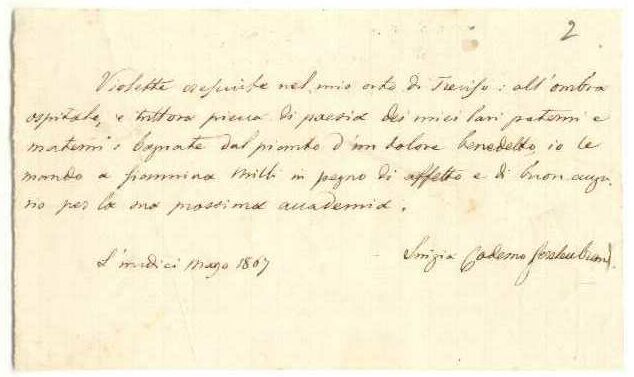 2
Violette cresciute nel mio orto di Treviso: all'ombra
ospitale, e tuttora piena di poesia dei miei lari paterni e
materni: bagnate dal pianto d'un dolore benedetto, io le
mando a Giannina Milli in pegno di affetto e di buon augu
rio per la sua prossima accademia.
L'undici Marzo 1867
Luigia Codemo Gerstenbrand